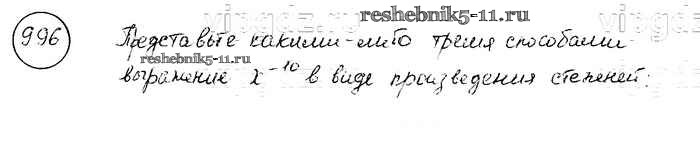 reshebnik5-11.ru
996 Представьте какими-либо тремя способами
reshebnik5-11.ru
выражение x⁻¹⁰ в виде произведения степеней: